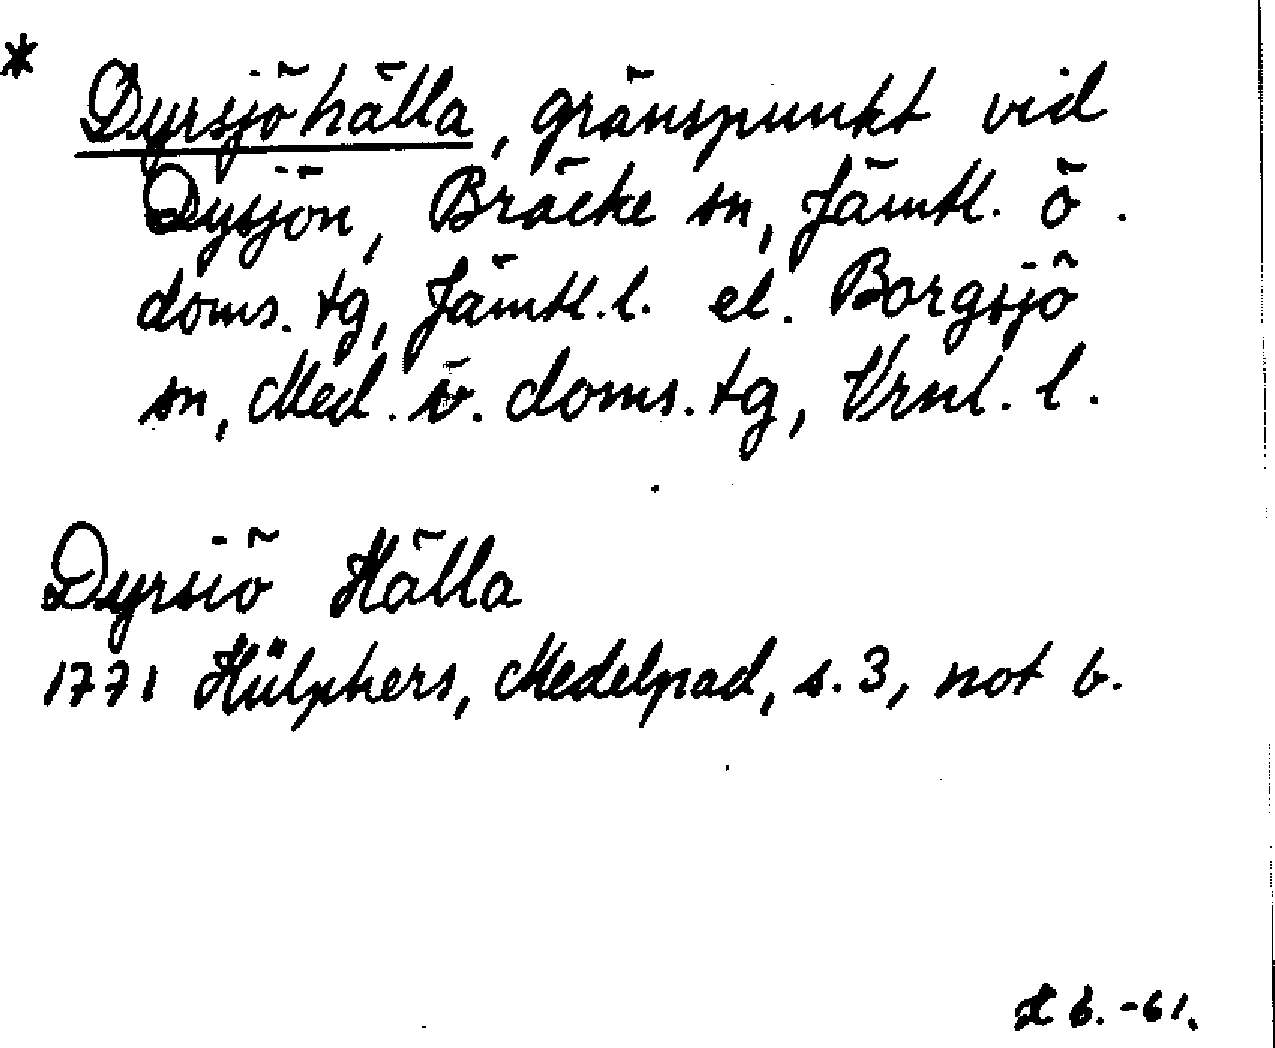 * Dyrsjöhälla, gränspunkt vid
Dysjön, Bräcke sn, Jämtl. ö.
doms. tg, Jämtl. l. el. Borgsjö
sn, Med. v. doms. tg, Vrnl. l.
Dyrsiö Hälla
1771 Hülphers, Medelpad, s. 3, not b.
6. -61.